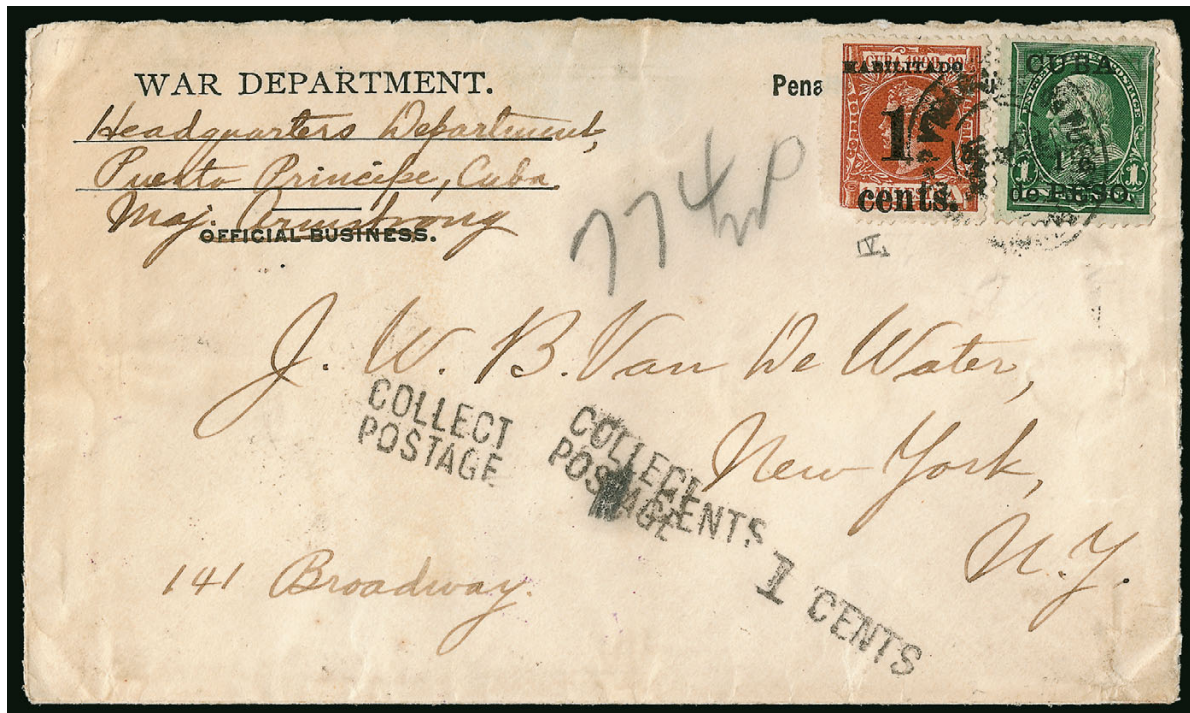 WAR DEPARTMENT.
Headquarters Department,
Puerto Principe, Cuba.
Maj. Armstrong
OFFICIAL BUSINESS.
Pena
CUBA 1898
HABILITADO
1
cents.
CUBA
1
de PESO.
1 1
774
IV.
J. W. B. Van De Water,
New York,
N.Y.
141 Broadway.
COLLECT
POSTAGE
COLLECT
POSTAGE
CENTS
1 CENTS